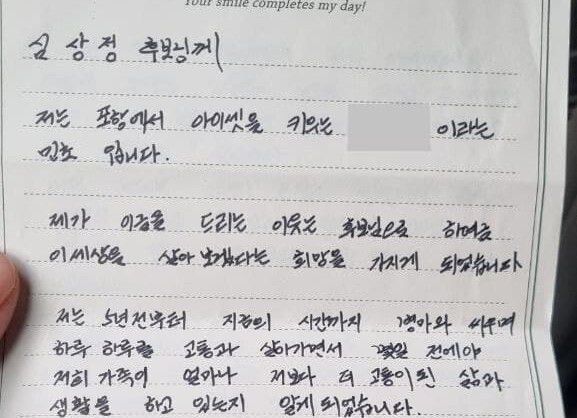 Your smile completes my day!
심 상 정 후보님께
저는 포항에서 아이셋을 키우는 이라는
민초 입니다.
제가 이글을 드리는 이유는 후보님으로 하여금
이세상을 살아 보겠다는 희망을 가지게 되었습니다
저는 5년전부터 지금의 시간까지 병마와 싸우며
하루 하루를 고통과 살아가면서 몇일 전에야
저희 가족이 얼마나 저보다 더 고통이된 삶과
생활을 하고 있는지 알게 되었습니다.